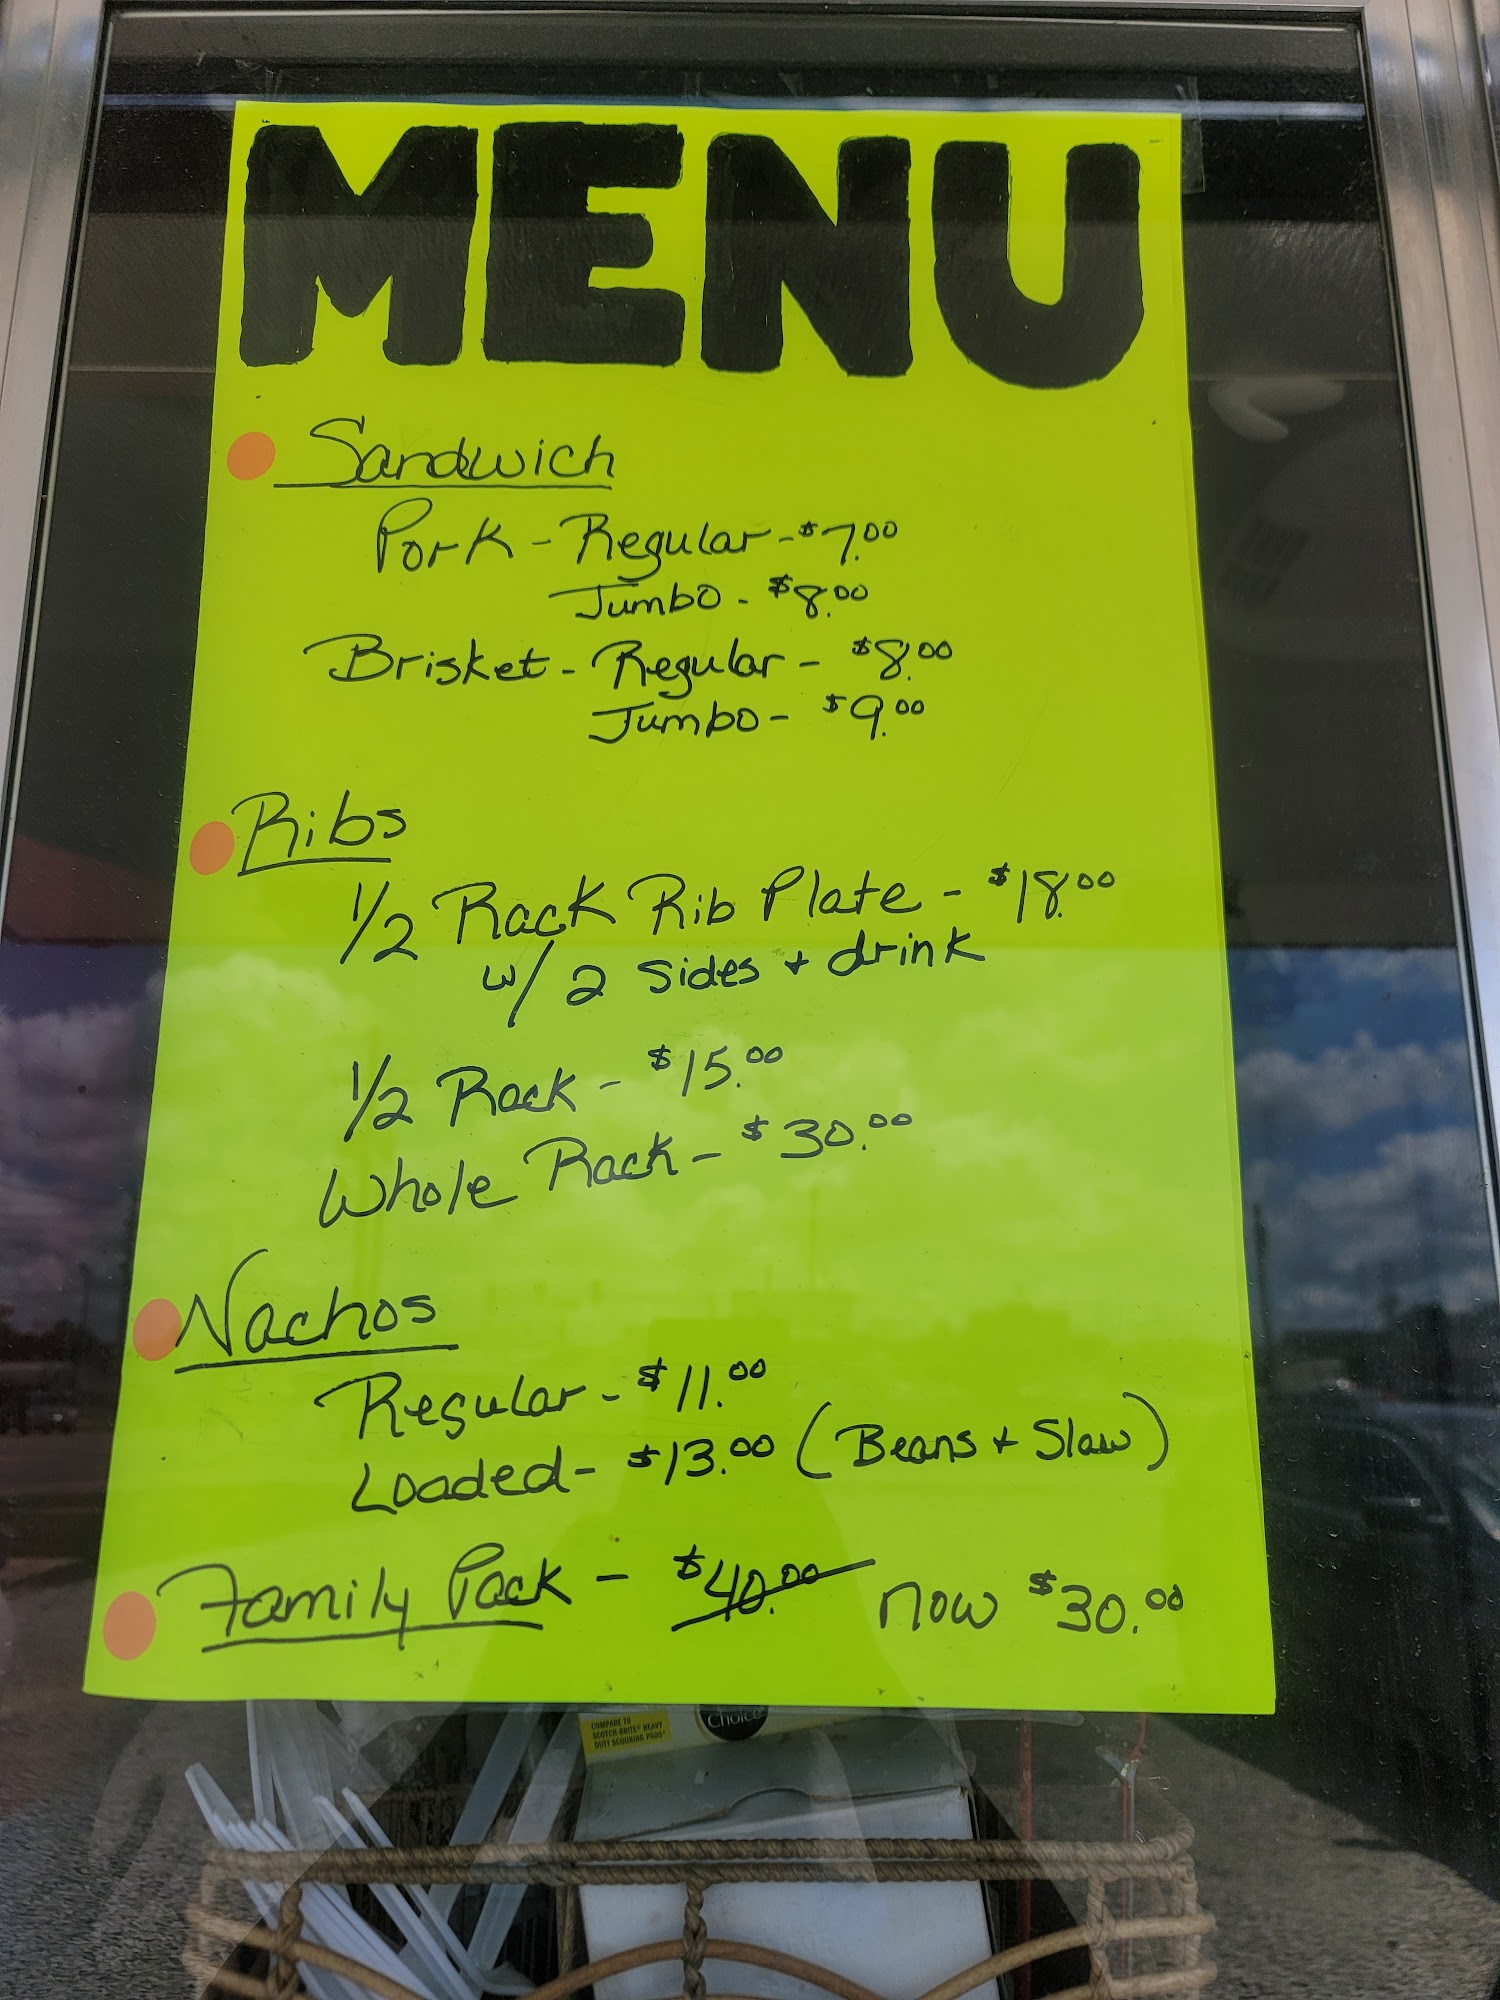 MENU
Sandwich
Pork - Regular - $7.00
Jumbo - $8.00
Brisket - Regular - $8.00
Jumbo - $9.00
Ribs
1/2 Rack Rib Plate - $18.00
w/ 2 Sides + drink
1/2 Rack - $15.00
Whole Rack - $30.00
Nachos
Regular - $11.00
Loaded - $13.00 (Beans + Slaw)
Family Pack - $40.00 now $30.00
COMPARE TO
SCOTCH-BRITE® HEAVY
DUTY SCOURING PADS*
Choice